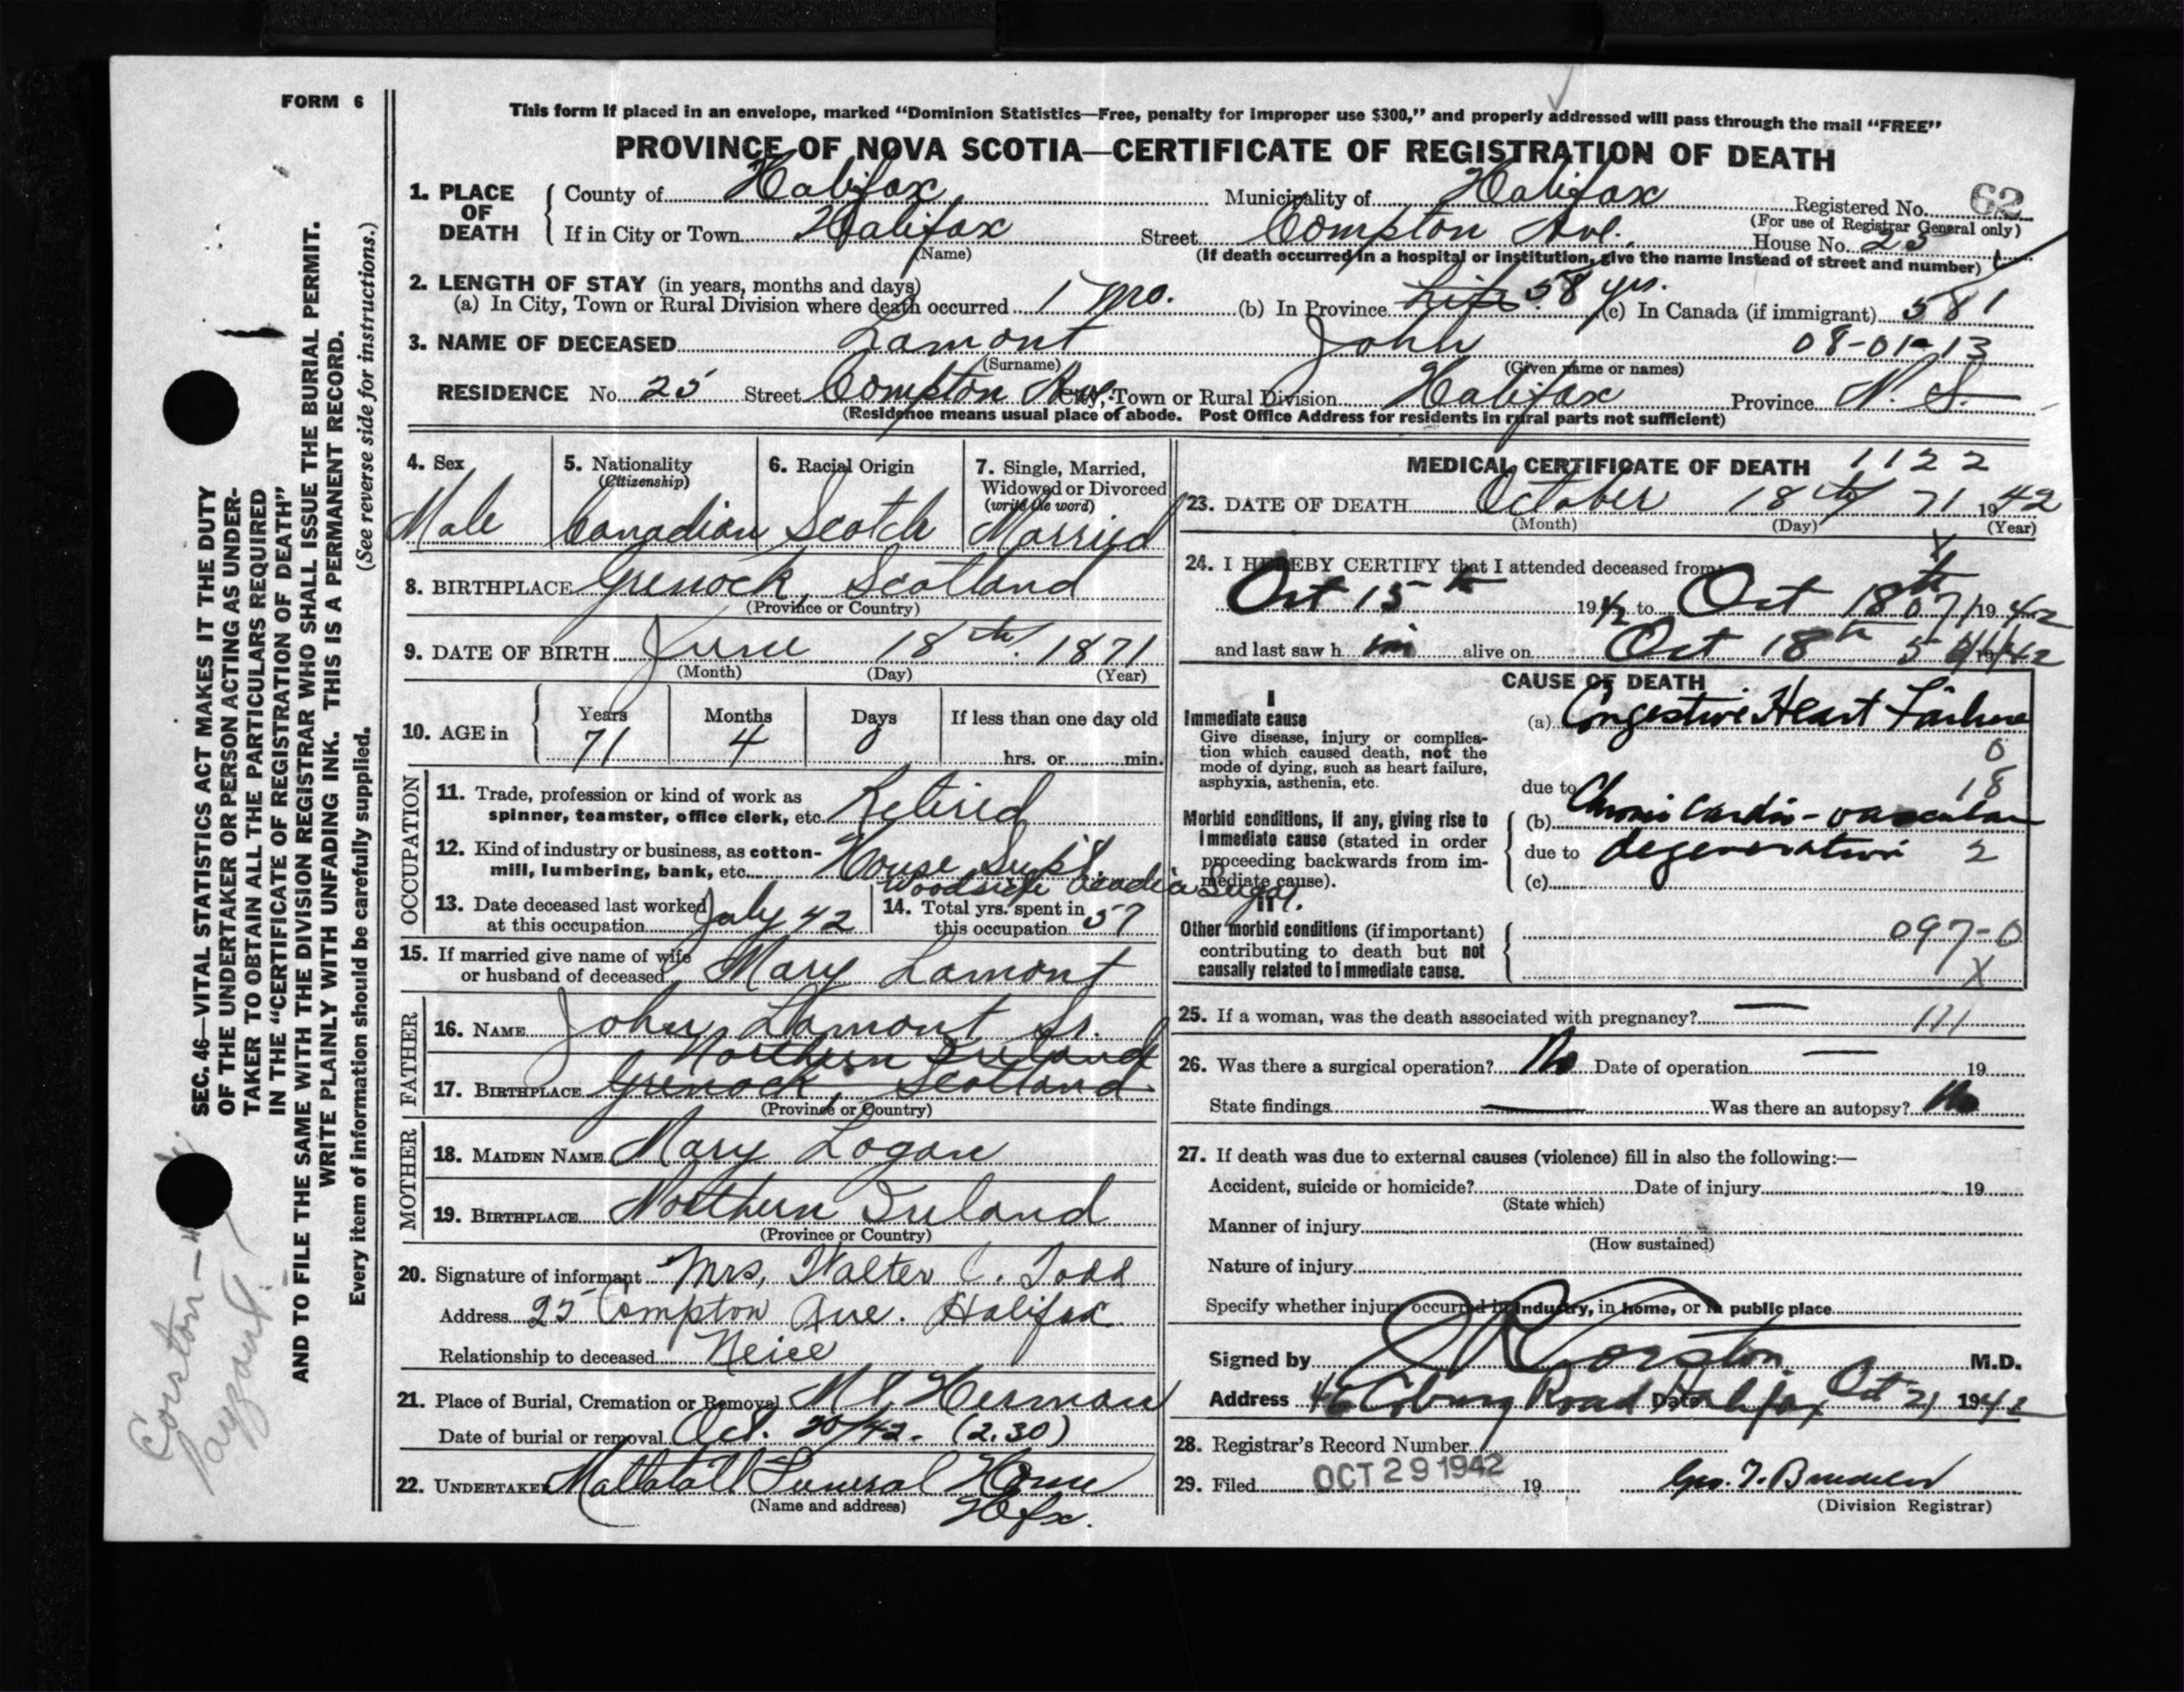 FORM 6
This form if placed in an envelope, marked “Dominion Statistics—Free, penalty for improper use $300,” and properly addressed will pass through the mail “FREE”
PROVINCE OF NOVA SCOTIA—CERTIFICATE OF REGISTRATION OF DEATH
1. PLACE OF DEATH { County of Halifax Municipality of Halifax Registered No. 62
(For use of Registrar General only)
If in City or Town Halifax Street Compton Ave. House No. 25
(Name) (If death occurred in a hospital or institution, give the name instead of street and number)
2. LENGTH OF STAY (in years, months and days)
(a) In City, Town or Rural Division where death occurred 1 mo. (b) In Province Life 58 yrs. (c) In Canada (if immigrant) 581
3. NAME OF DECEASED Lamont John 08-01-13
(Surname) (Given name or names)
RESIDENCE No. 25 Street Compton Ave. City, Town or Rural Division Halifax Province N. S.
(Residence means usual place of abode. Post Office Address for residents in rural parts not sufficient)
4. Sex Male
5. Nationality (Citizenship) Canadian
6. Racial Origin Scotch
7. Single, Married, Widowed or Divorced (write the word) Married
8. BIRTHPLACE Grenock, Scotland
(Province or Country)
9. DATE OF BIRTH June 18th. 1871
(Month) (Day) (Year)
10. AGE in { Years 71 Months 4 Days 0 If less than one day old
hrs. or min.
OCCUPATION
11. Trade, profession or kind of work as
spinner, teamster, office clerk, etc. Retired
12. Kind of industry or business, as cotton-
mill, lumbering, bank, etc. House Supt.
Woodside Acadia Sugar.
13. Date deceased last worked
at this occupation July 42
14. Total yrs. spent in
this occupation 57
15. If married give name of wife
or husband of deceased Mary Lamont
FATHER
16. NAME John Lamont Sr.
Northern Ireland
17. BIRTHPLACE Grenock, Scotland
(Province or Country)
MOTHER
18. MAIDEN NAME Mary Logan
19. BIRTHPLACE Northern Ireland
(Province or Country)
20. Signature of informant Mrs. Walter C. Todd
Address 25 Compton Ave. Halifax.
Relationship to deceased Neice
21. Place of Burial, Cremation or Removal Mt Herman
Date of burial or removal Oct. 20/42. (2.30)
22. UNDERTAKER Mattatall Funeral Home
(Name and address) Hfx.
MEDICAL CERTIFICATE OF DEATH 1122
23. DATE OF DEATH October 18th 71 1942
(Month) (Day) (Year)
24. I HEREBY CERTIFY that I attended deceased from:
Oct 15th 1942 to Oct 18th 071 1942
and last saw him alive on Oct 18th 1942
CAUSE OF DEATH
I
Immediate cause
Give disease, injury or complica-
tion which caused death, not the
mode of dying, such as heart failure,
asphyxia, asthenia, etc.
(a) Congestive Heart Failure
0
18
due to
Morbid conditions, if any, giving rise to
immediate cause (stated in order
proceeding backwards from im-
mediate cause).
(b) Chronic Cardio-vascular
due to degeneration 2
(c)
II
Other morbid conditions (if important)
contributing to death but not
causally related to immediate cause.
097-0
X
25. If a woman, was the death associated with pregnancy? — 111
26. Was there a surgical operation? No Date of operation — 19
State findings — Was there an autopsy? No
27. If death was due to external causes (violence) fill in also the following:—
Accident, suicide or homicide? Date of injury 19
(State which)
Manner of injury
(How sustained)
Nature of injury
Specify whether injury occurred in industry, in home, or in public place
Signed by Corston M.D.
Address 46 Coburg Road Halifax Date Oct 21 1942
28. Registrar's Record Number
29. Filed OCT 29 1942 19
(Division Registrar)
SEC. 46—VITAL STATISTICS ACT MAKES IT THE DUTY
OF THE UNDERTAKER OR PERSON ACTING AS UNDER-
TAKER TO OBTAIN ALL THE PARTICULARS REQUIRED
IN THE “CERTIFICATE OF REGISTRATION OF DEATH”
AND TO FILE THE SAME WITH THE DIVISION REGISTRAR WHO SHALL ISSUE THE BURIAL PERMIT.
WRITE PLAINLY WITH UNFADING INK. THIS IS A PERMANENT RECORD.
Every item of information should be carefully supplied. (See reverse side for instructions.)
Corston